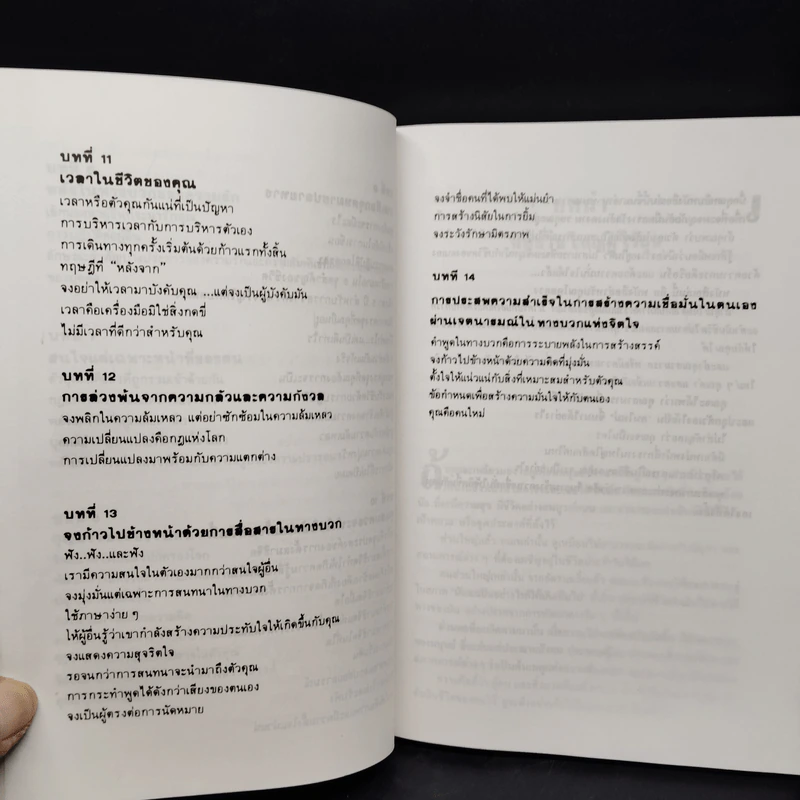 บทที่ 11
เวลาในชีวิตของคุณ
เวลาหรือตัวคุณกันแน่ที่เป็นปัญหา
การบริหารเวลากับการบริหารตัวเอง
การเดินทางทุกครั้งเริ่มต้นด้วยก้าวแรกทั้งสิ้น
ทฤษฎีที่ “หลังจาก”
จงอย่าให้เวลามาบังคับคุณ ...แต่จงเป็นผู้บังคับมัน
เวลาคือเครื่องมือมิใช่สิ่งกดขี่
ไม่มีเวลาที่ดีกว่าสำหรับคุณ
บทที่ 12
การล่วงพ้นจากความกลัวและความกังวล
จงพลิกในความล้มเหลว แต่อย่าซักซ้อมในความล้มเหลว
ความเปลี่ยนแปลงคือกฎแห่งโลก
การเปลี่ยนแปลงมาพร้อมกับความแตกต่าง
บทที่ 13
จงก้าวไปข้างหน้าด้วยการสื่อสารในทางบวก
ฟัง..ฟัง..และฟัง
เรามีความสนใจในตัวเองมากกว่าสนใจผู้อื่น
จงมุ่งมั่นแต่เฉพาะการสนทนาในทางบวก
ใช้ภาษาง่าย ๆ
ให้ผู้อื่นรู้ว่าเขากำลังสร้างความประทับใจให้เกิดขึ้นกับคุณ
จงแสดงความสุจริตใจ
รอจนกว่าการสนทนาจะนำมาถึงตัวคุณ
การกระทำพูดได้ดังกว่าเสียงของตนเอง
จงเป็นผู้ตรงต่อการนัดหมาย
จงจำชื่อคนที่ได้พบให้แม่นยำ
การสร้างนิสัยในการยิ้ม
จงระวังรักษามิตรภาพ
บทที่ 14
การประสพความสำเร็จในการสร้างความเชื่อมั่นในตนเอง
ผ่านเจตนารมณ์ในทางบวกแห่งจิตใจ
คำพูดในทางบวกคือการระบายพลังในการสร้างสรรค์
จงก้าวไปข้างหน้าด้วยความคิดที่มุ่งมั่น
ตั้งใจให้แน่วแน่กับสิ่งที่เหมาะสมสำหรับตัวคุณ
ข้อกำหนดเพื่อสร้างความมั่นใจให้กับตนเอง
คุณคือคนใหม่